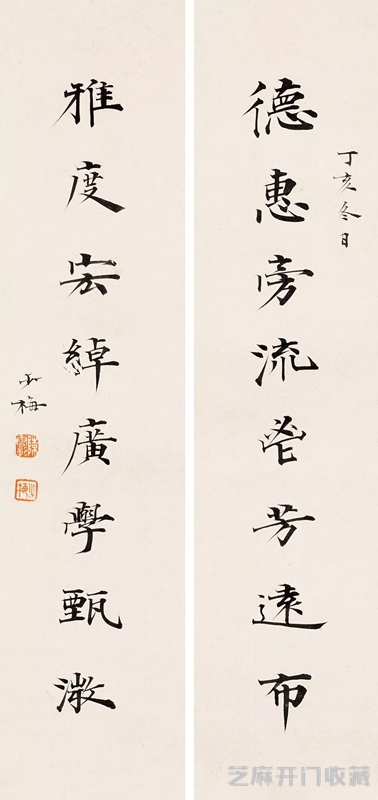 丁亥冬日
德惠旁流芳遠布
雅度宏綽廣學甄微
梅
芝麻开门收藏